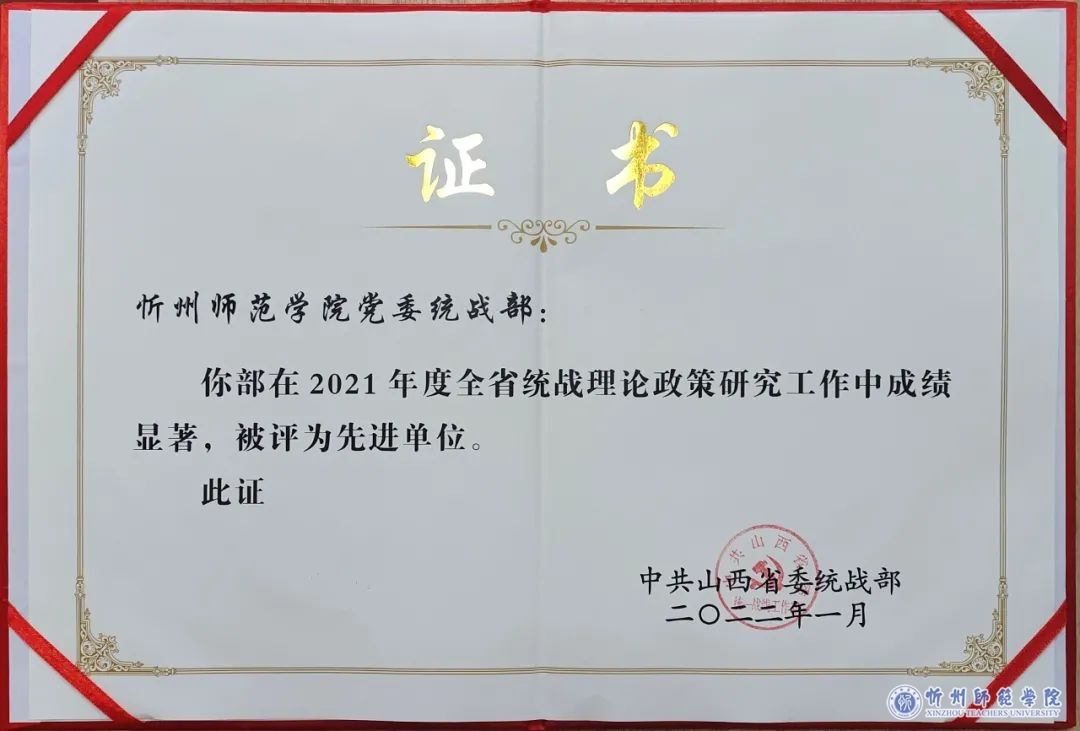 证 书
忻州师范学院党委统战部：
你部在2021年度全省统战理论政策研究工作中成绩
显著，被评为先进单位。
此证
中共山西省委统战部
二〇二二年一月
中共山西省
统一战线工作
忻州师范学院
XINZHOU TEACHERS UNIVERSITY